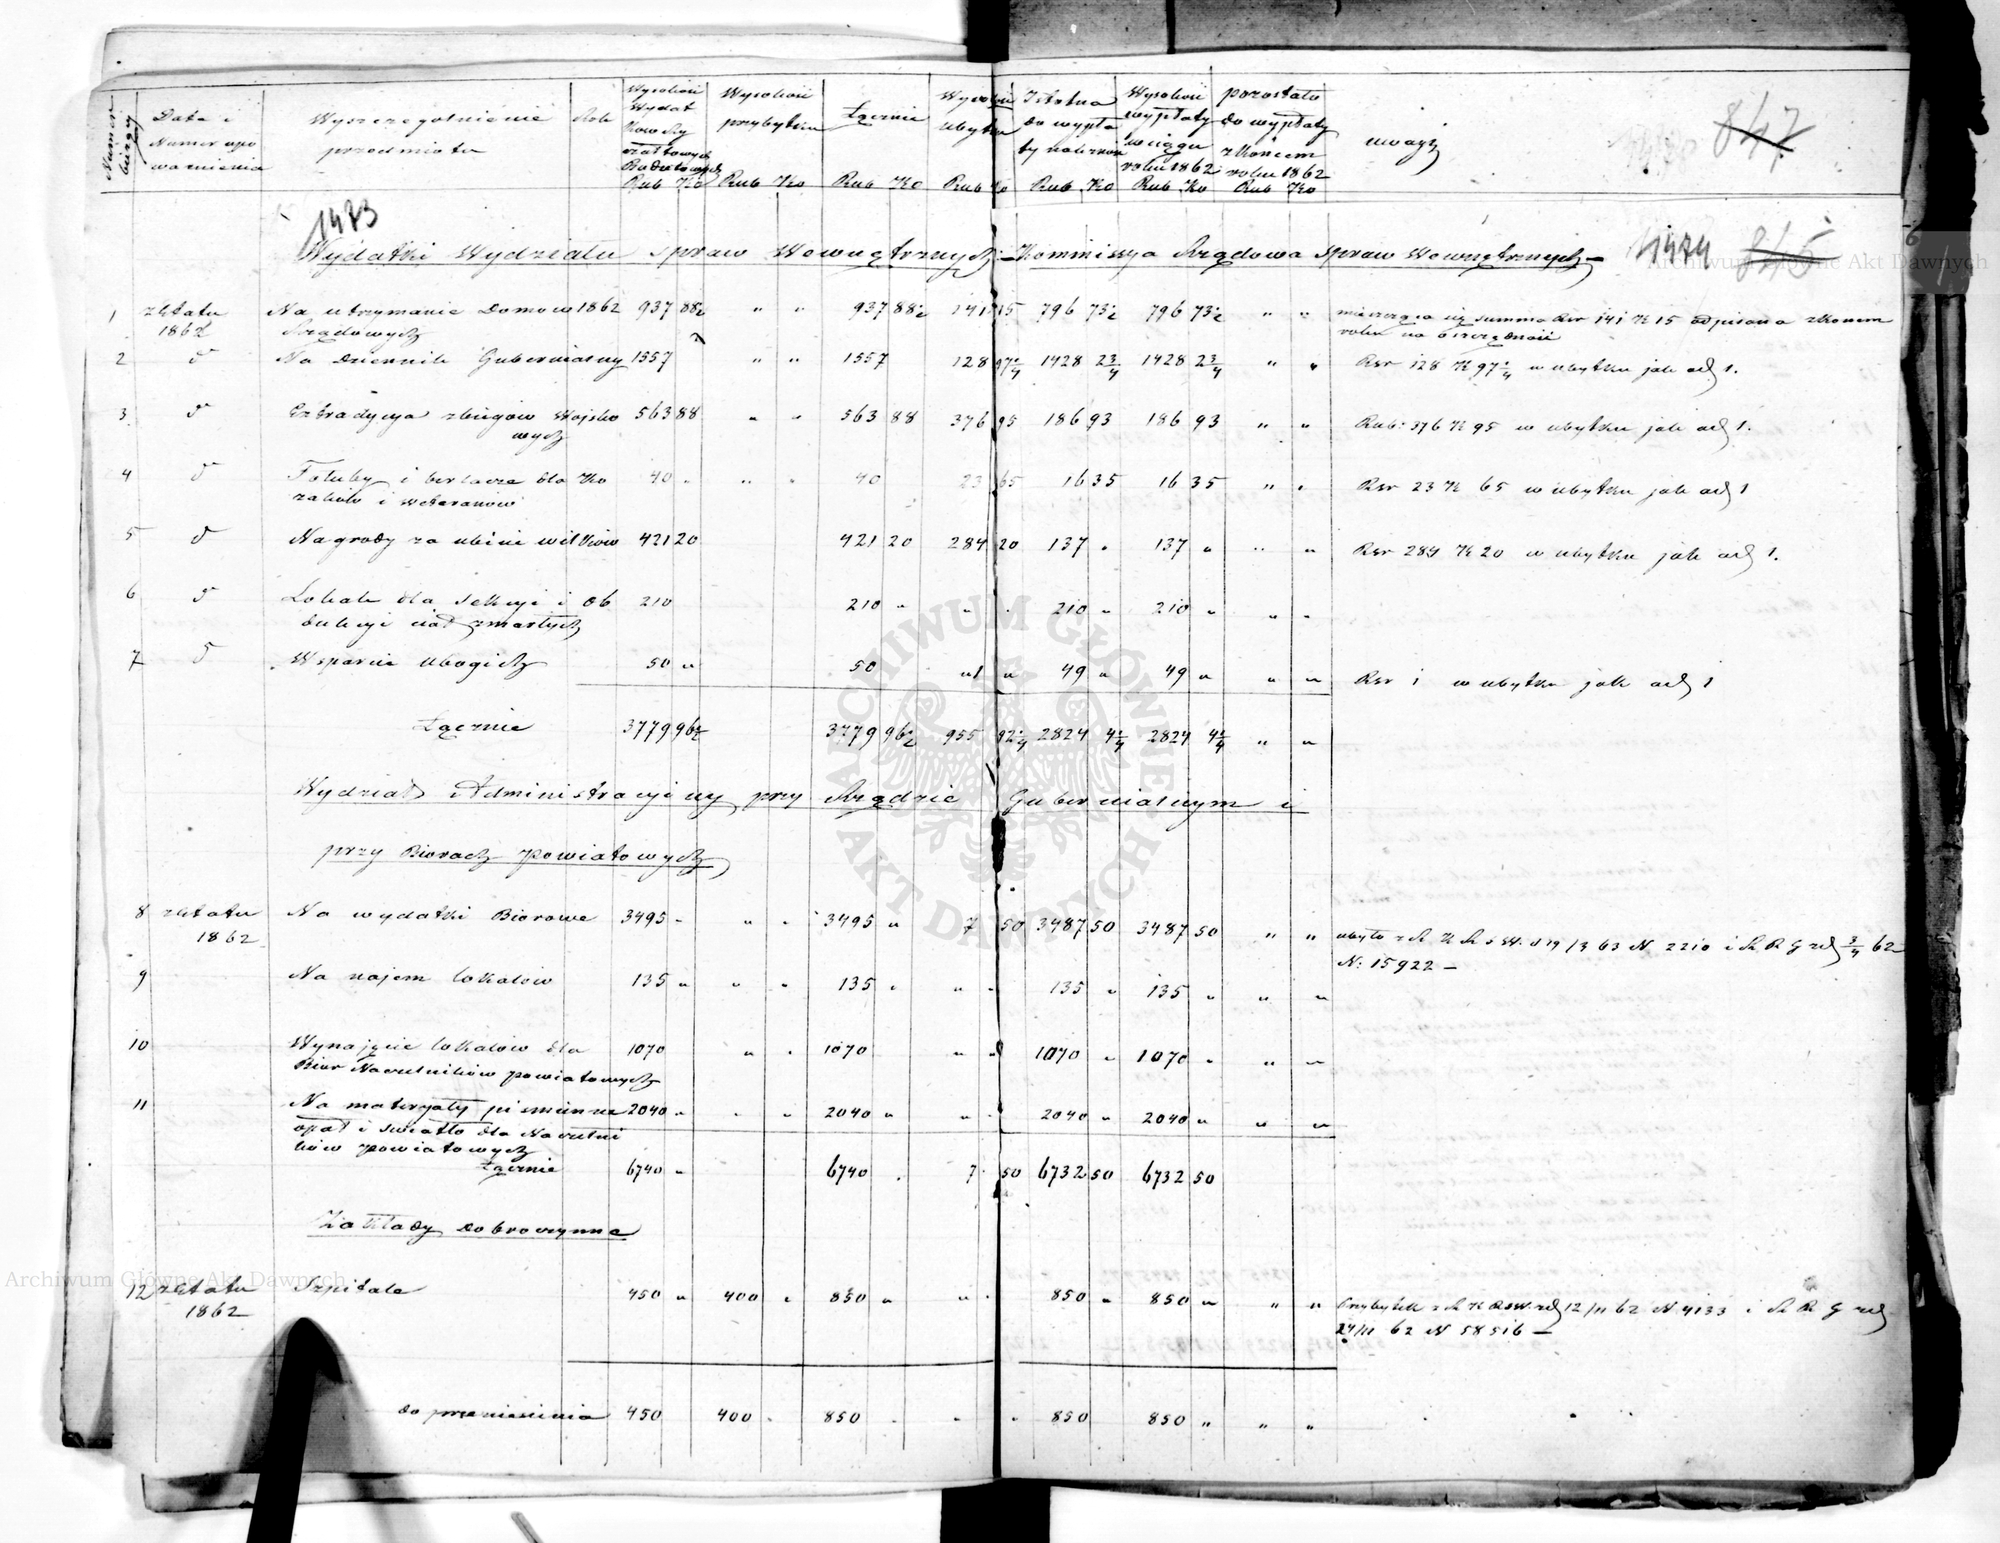 Numer bieżący
Data i Numer upoważnienia
Wyszczególnienie przedmiotu
Rok
Wysokość Wydatkow
Budżetowych
Rub Ko
Wysokość przybytku
Rub Ko
Łącznie
Rub Ko
Wysokość ubytku
Rub Ko
Istotna do wypłaty należność
Rub Ko
Wysokość wypłaty w ciągu roku 1862
Rub Ko
pozostało do wypłaty z końcem roku 1862
Rub Ko
uwagi
847
1473
Wydatki Wydziału Spraw Wewnętrznych – Kommissya Rządowa Spraw Wewnętrznych –
1474 845
1 z Etatu 1862 Na utrzymanie Domow 1862 937 88½ " " 937 88½ 141 15 796 73½ 796 73½ " "
Rządowych
summa Rsr 141 K 15 odpisana z koncem
roku na oszczędność
2 d Na Dziennik Gubernialny 1557 " " 1557 128 97¼ 1428 2¾ 1428 2¾ " " Rsr 128 K 97¼ w ubytku jak ad 1.
3 d Extradycya zbiegów Wojsko 563 88 " " 563 88 376 95 186 93 186 93 " " Rub: 376 K 95 w ubytku jak ad 1.
wych
4 d i berlacze dla Ko 40 " " " 40 23 65 16 35 16 35 " " Rsr 23 K 65 w ubytku jak ad 1
zaków i weteranów
5 d Nagrody za ubicie wilków 421 20 421 20 284 20 137 " 137 " " " Rsr 284 K 20 w ubytku jak ad 1.
6 d Lokale dla sekcyi i ob 210 210 " " " 210 " 210 " " "
dukcyi nad zmarłych
7 d Wsparcie ubogich 50 " 50 " 1 " 49 " 49 " " " Rsr 1 w ubytku jak ad 1
Łącznie 3779 96½ 3779 96½ 955 92¼ 2824 4¼ 2824 4¼ " "
Wydział Administracyiny przy Rządzie Gubernialnym i
przy Biorach Powiatowych
8 z Etatu Na wydatki Biorowe 3495 - " " 3495 " 7 50 3487 50 3487 50 " "
1862
N. 2210 i R G
62
N: 15922 –
9 Na najem lokalów 135 " " " 135 " " " 135 " 135 " " "
10 Wynajęcie lokalów dla 1070 " " 1070 " " 1070 " 1070 " " "
Biór Naczelników powiatowych
11 Na materyały piśmienne 2040 " " " 2040 " " " 2040 " 2040 " " "
opał i światło dla Naczelni
ków powiatowych
Łącznie 6740 " 6740 . 7 50 6732 50 6732 50
Zakłady dobroczynne
12 z Etatu Szpitale 450 " 400 " 850 " " " 850 " 850 " " "
1862
Przybytek 12/11 62 N 4133 i R G
24/11 62 N 58516 –
do przeniesienia 450 400 . 850 . " " 850 850 " " "
ARCHIWUM GŁÓWNE AKT DAWNYCH
Archiwum Główne Akt Dawnych
Archiwum Główne Akt Dawnych